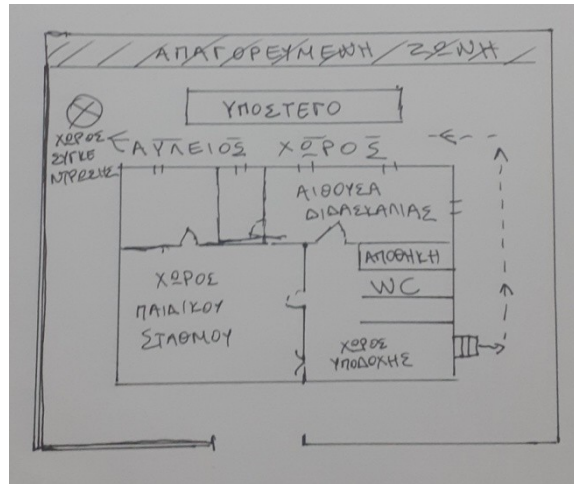 ΑΠΑΓΟΡΕΥΜΕΝΗ ΖΩΝΗ
ΥΠΟΣΤΕΓΟ
ΧΩΡΟΣ
ΣΥΓΚΕ
ΝΤΡΩΣΗΣ
ΑΥΛΕΙΟΣ ΧΩΡΟΣ
ΑΙΘΟΥΣΑ
ΔΙΔΑΣΚΑΛΙΑΣ
ΑΠΟΘΗΚΗ
WC
ΧΩΡΟΣ
ΠΑΙΔΙΚΟΥ
ΣΤΑΘΜΟΥ
ΧΩΡΟΣ
ΥΠΟΔΟΧΗΣ